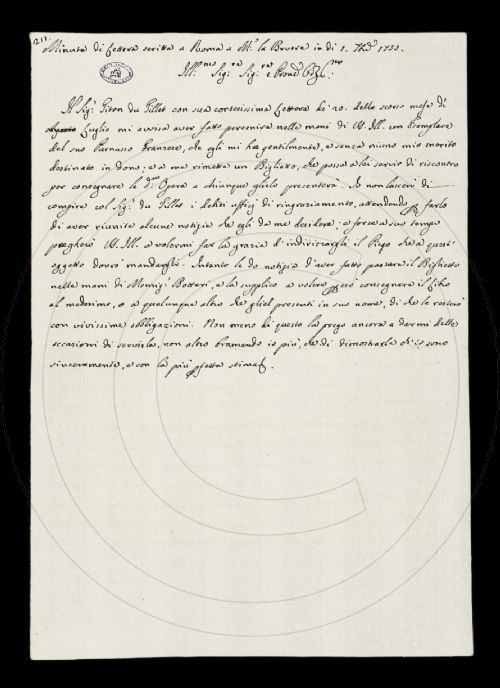 211.
Minuta di lettera scritta a Roma a Mr. la Bruere in di 1. 7bre 1750.
Ill.mo Sig.re Sig.re e Pron
Il Sig.r Titon du Tillet con sua cortesissima lettera de' 20. dello scorso mese di
Luglio mi avvisa aver fatto pervenire nelle mani di VS. Ill. un Esemplare
del suo Parnasso Franzese, che egli mi ha gentilmente, e senza niuno mio merito
destinato in dono; e a me rimette un Biglietto, che possa a lei servir di riscontro
per consegnare la d.a Opera a chiunque glielo presenterà. Io non lascerò di
compire col Sig.r du Tillet i debiti uffizj di ringraziamento, attendendo per farlo
di aver riunite alcune notizie che egli da me desidera: e forse a suo tempo
pregherò VS. Ill. a volermi far la grazia d'indirizzargli il Piego che a quest'
oggetto dovrò mandargli. Intanto le do notizia d'aver fatto passare il Biglietto
nelle mani di Monsig.r Bottari, e la supplico a volere però consegnare il libro
al medesimo, o a qualunque altro che gliel presenti in suo nome, di che le resterò
con vivissime obbligazioni. Non meno di questo la prego ancora a darmi delle
occasioni di servirla, non altro bramando io più, che di dimostrarle ch'io sono
sinceramente, e con la più perfetta stima